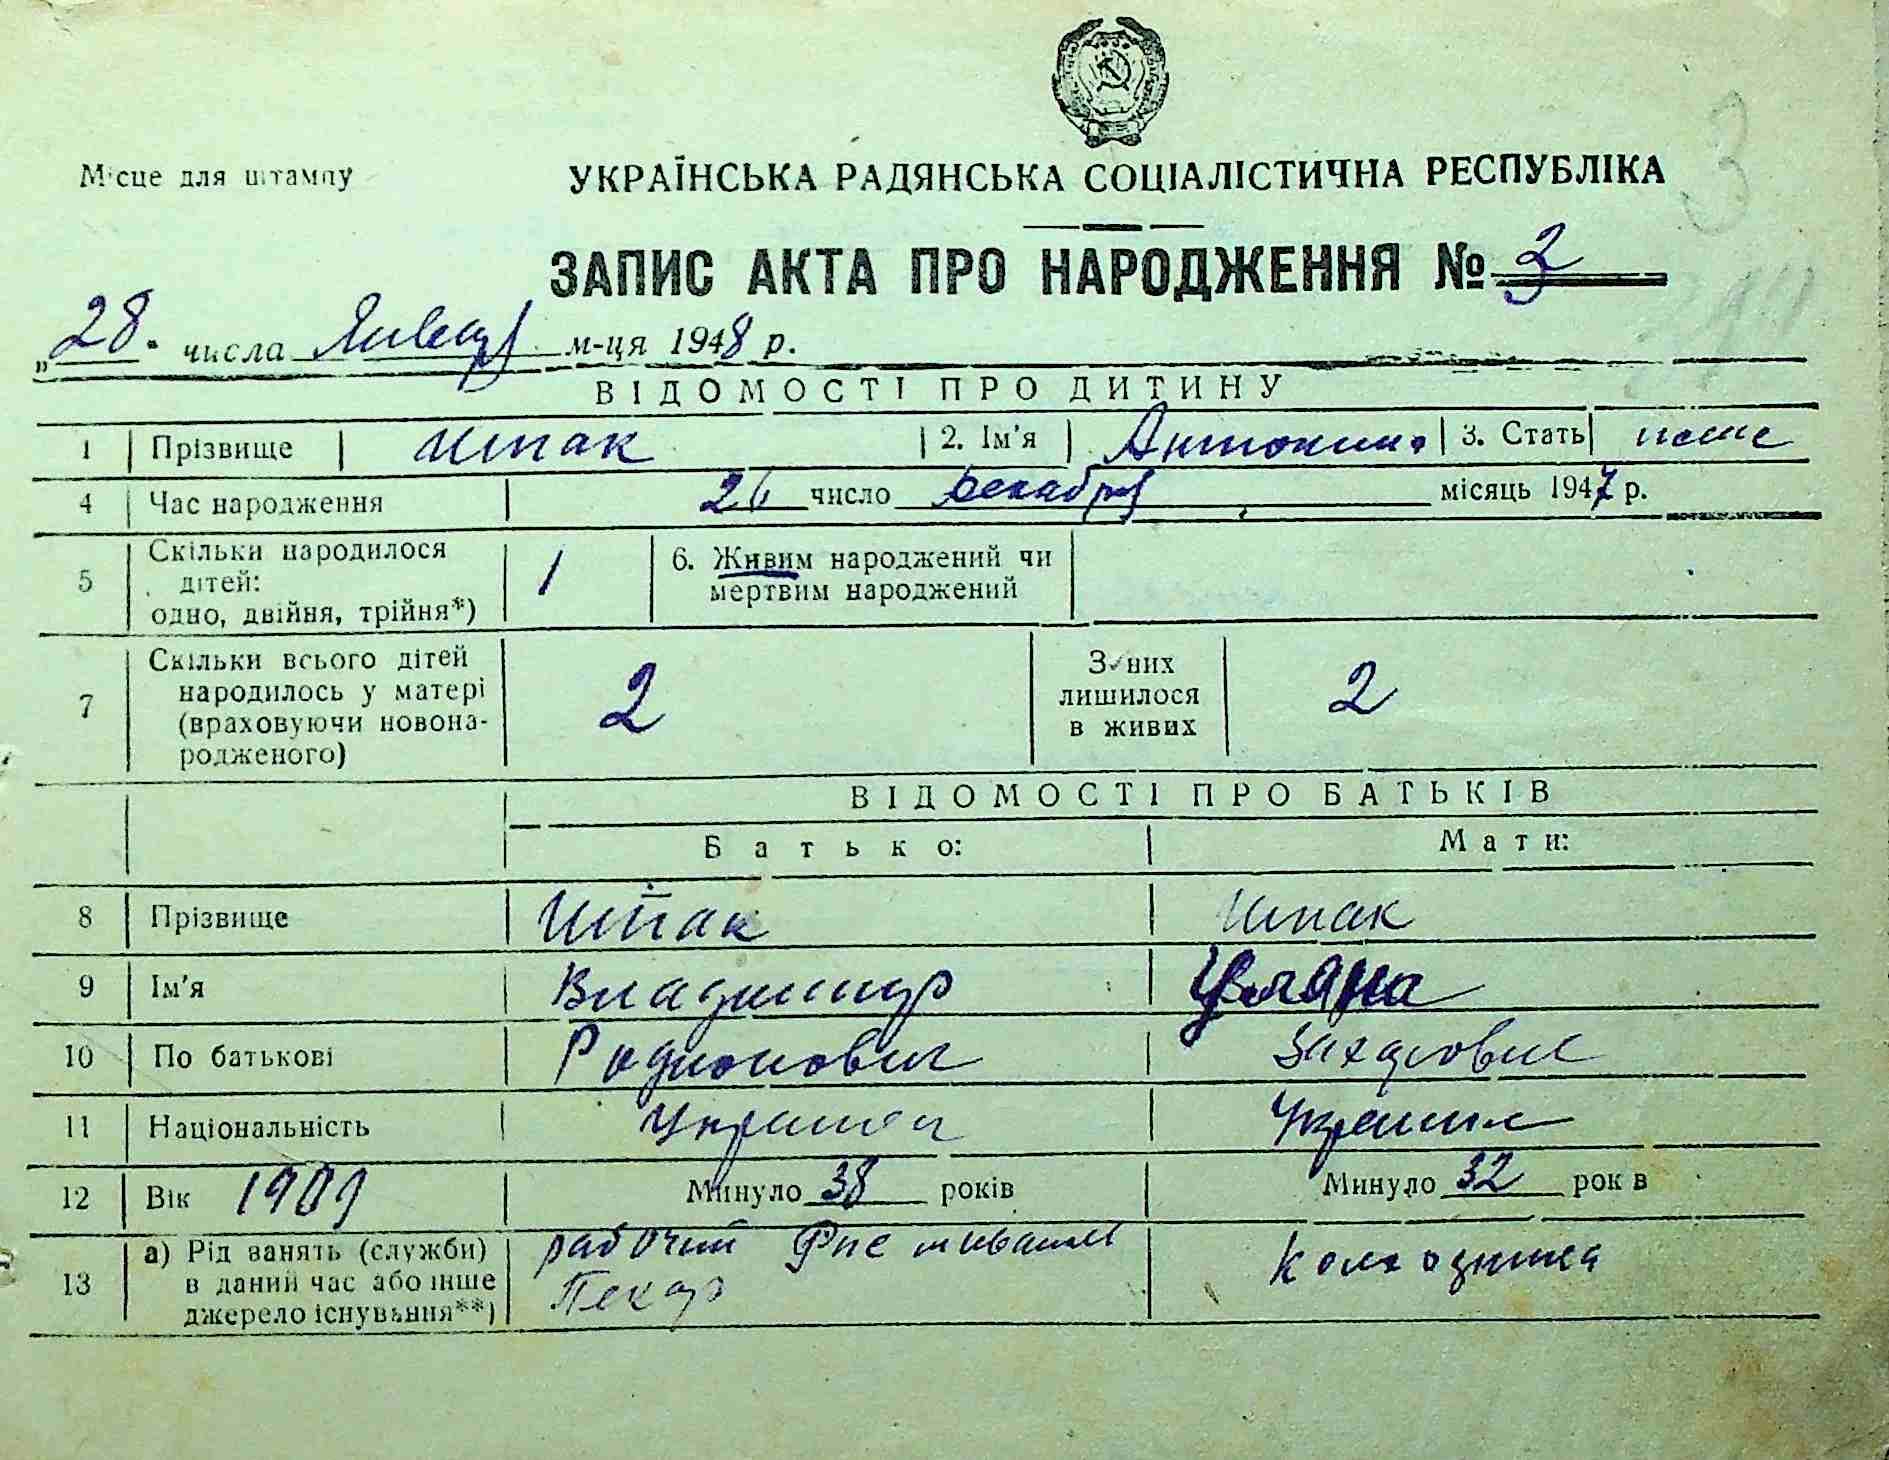 3
Місце для штампу
УКРАЇНСЬКА РАДЯНСЬКА СОЦІАЛІСТИЧНА РЕСПУБЛІКА
ЗАПИС АКТА ПРО НАРОДЖЕННЯ № 3
„28" числа Января м-ця 1948 р.
ВІДОМОСТІ ПРО ДИТИНУ
1 Прізвище Шпак 2. Ім'я Антонина 3. Стать
4 Час народження 26 число Декабря місяць 1947 р.
5 Скільки народилося дітей: одно, двійня, трійня*) 1 6. Живим народжений чи мертвим народжений
7 Скільки всього дітей народилось у матері (враховуючи новонародженого) 2 З них лишилося в живих 2
ВІДОМОСТІ ПРО БАТЬКІВ
Батько: Мати:
8 Прізвище Шпак Шпак
9 Ім'я Владимир Уляна
10 По батькові Родионович Захаровна
11 Національність
12 Вік 1909 Минуло 38 років Минуло 32 років
13 а) Рід занять (служби) в даний час або інше джерело існування**) рабочий Пекар Колхозница